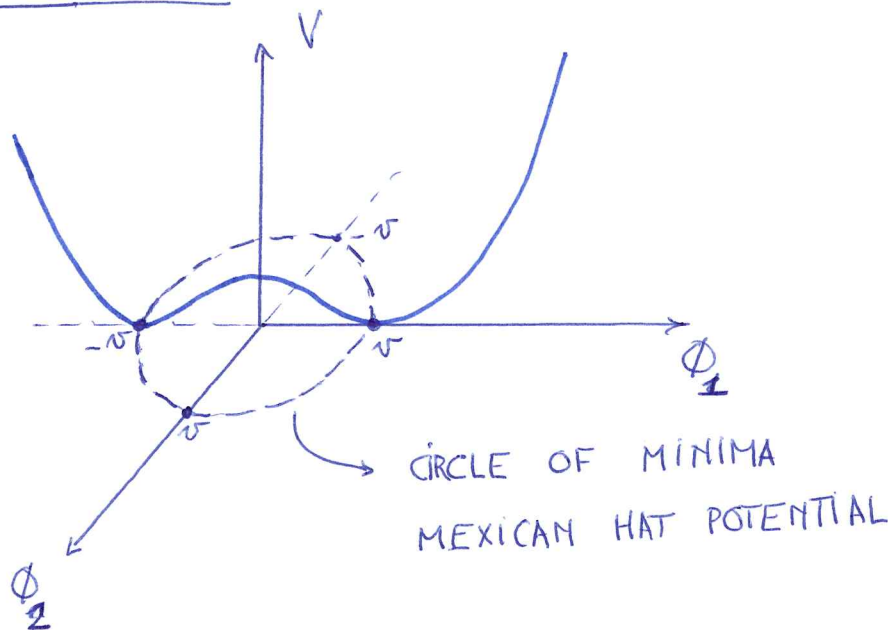 V
-v
-v
v
v
ϕ₁
ϕ₂
CIRCLE OF MINIMA
MEXICAN HAT POTENTIAL